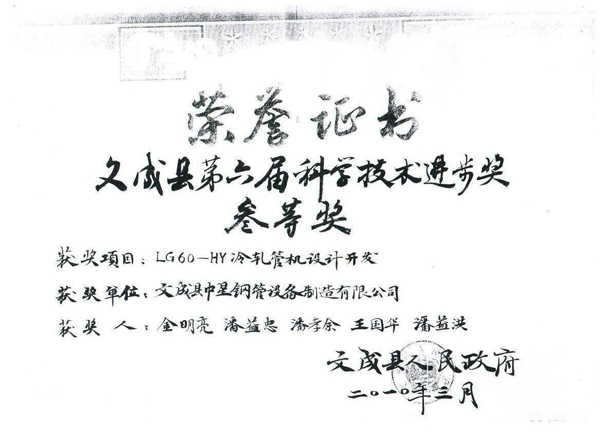 荣誉证书
文成县第六届科学技术进步奖
叁等奖
获奖项目：LG60-HY冷轧管机设计开发
获奖单位：文成县中星钢管设备制造有限公司
获奖人：金明亮 潘益忠 潘孝余 王国华 潘益洪
文成县人民政府
二〇一〇年三月